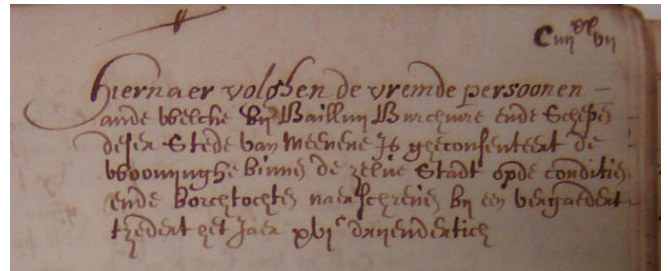 Hiernaer volghen de vremde persoonen
ande welcke by Bailliu Burchmre ende Schepen
deser Stede van Meenene Is gheconsenteert de
Wooninghe binnen de zelve Stadt opde conditien
ende borchtochten naerschreven by een vergaedert
tzedert het Jaer xvjc dryendertich